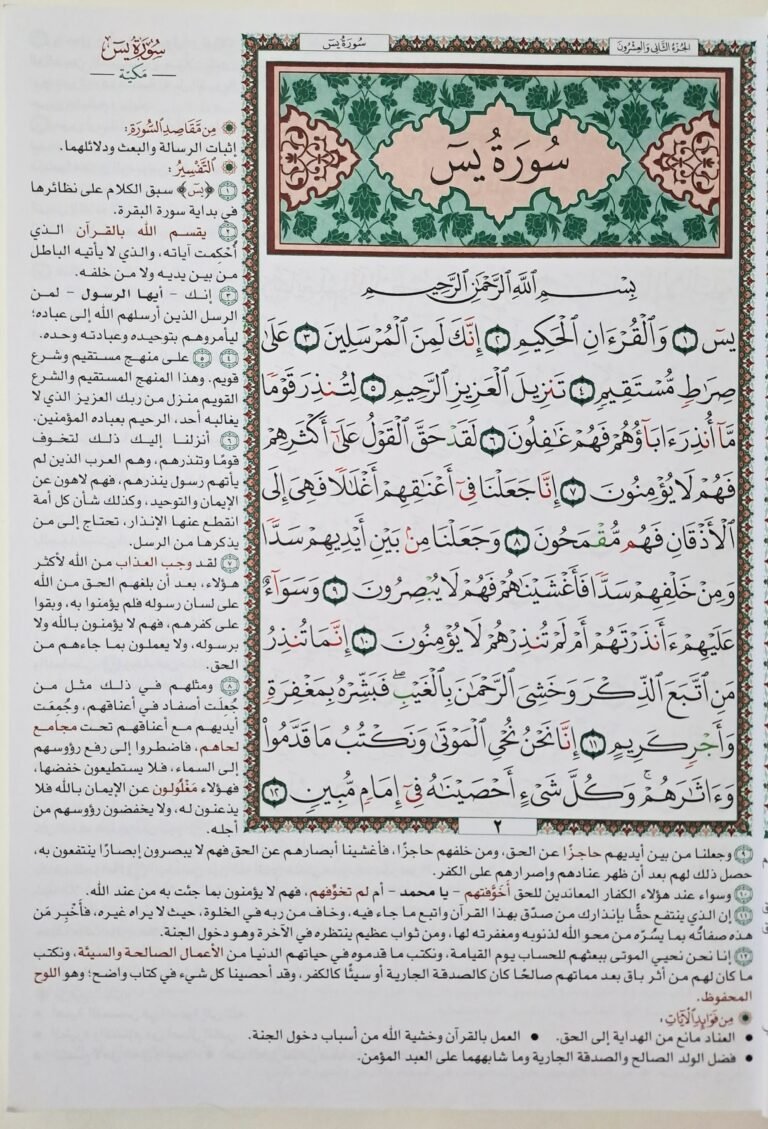 سُورَةُ يسٓ
الجُزءُ الثَّانِي وَالعِشْرُونَ
سُورَةُ يسٓ
بِسْمِ اللَّهِ الرَّحْمَٰنِ الرَّحِيمِ
يسٓ ١ وَالْقُرْءَانِ الْحَكِيمِ ٢ إِنَّكَ لَمِنَ الْمُرْسَلِينَ ٣ عَلَىٰ
صِرَٰطٍ مُّسْتَقِيمٍ ٤ تَنزِيلَ الْعَزِيزِ الرَّحِيمِ ٥ لِتُنذِرَ قَوْمًا
مَّآ أُنذِرَ ءَابَآؤُهُمْ فَهُمْ غَٰفِلُونَ ٦ لَقَدْ حَقَّ الْقَوْلُ عَلَىٰٓ أَكْثَرِهِمْ
فَهُمْ لَا يُؤْمِنُونَ ٧ إِنَّا جَعَلْنَا فِىٓ أَعْنَٰقِهِمْ أَغْلَٰلًا فَهِىَ إِلَى
الْأَذْقَانِ فَهُم مُّقْمَحُونَ ٨ وَجَعَلْنَا مِنۢ بَيْنِ أَيْدِيهِمْ سَدًّا
وَمِنْ خَلْفِهِمْ سَدًّا فَأَغْشَيْنَٰهُمْ فَهُمْ لَا يُبْصِرُونَ ٩ وَسَوَآءٌ
عَلَيْهِمْ ءَأَنذَرْتَهُمْ أَمْ لَمْ تُنذِرْهُمْ لَا يُؤْمِنُونَ ١٠ إِنَّمَا تُنذِرُ
مَنِ اتَّبَعَ الذِّكْرَ وَخَشِىَ الرَّحْمَٰنَ بِالْغَيْبِ ۖ فَبَشِّرْهُ بِمَغْفِرَةٍ
وَأَجْرٍ كَرِيمٍ ١١ إِنَّا نَحْنُ نُحْىِ الْمَوْتَىٰ وَنَكْتُبُ مَا قَدَّمُوا۟
وَءَاثَٰرَهُمْ ۚ وَكُلَّ شَىْءٍ أَحْصَيْنَٰهُ فِىٓ إِمَامٍ مُّبِينٍ ١٢
٢
سُورَةُ يسٓ
مَكيّة
مِن مَّقَاصِدِ السُّورَةِ:
إثبات الرسالة والبعث ودلائلهما.
التَّفْسِيرُ:
١ ﴿يسٓ﴾ سبق الكلام على نظائرها
في بداية سورة البقرة.
٢ يقسم الله بالقرآن الذي
أُحْكمت آياته، والذي لا يأتيه الباطل
من بين يديه ولا من خلفه.
٣ إنك – أيها الرسول – لمن
الرسل الذين أرسلهم الله إلى عباده؛
ليأمروهم بتوحيده وعبادته وحده.
٤ ٥ على منهج مستقيم وشرع
قويم. وهذا المنهج المستقيم والشرع
القويم منزل من ربك العزيز الذي لا
يغالبه أحد، الرحيم بعباده المؤمنين.
٦ أنزلنا إليك ذلك لتخوف
قومًا وتنذرهم، وهم العرب الذين لم
يأتهم رسول ينذرهم، فهم لاهون عن
الإيمان والتوحيد، وكذلك شأن كل أمة
انقطع عنها الإنذار، تحتاج إلى من
يذكرها من الرسل.
٧ لقد وجب العذاب من الله لأكثر
هؤلاء، بعد أن بلغهم الحق من الله
على لسان رسوله فلم يؤمنوا به، وبقوا
على كفرهم، فهم لا يؤمنون بالله ولا
برسوله، ولا يعملون بما جاءهم من
الحق.
٨ ومثلهم في ذلك مثل من
جُعلَت أصفاد في أعناقهم، وجُمعَت
أيديهم مع أعناقهم تحت مجامع
لحاهم، فاضطروا إلى رفع رؤوسهم
إلى السماء، فلا يستطيعون خفضها،
فهؤلاء مَغْلُولون عن الإيمان بالله فلا
يذعنون له، ولا يخفضون رؤوسهم من
أجله.
٩ وجعلنا من بين أيديهم حاجزًا عن الحق، ومن خلفهم حاجزًا، فأغشينا أبصارهم عن الحق فهم لا يبصرون إبصارًا ينتفعون به،
حصل ذلك لهم بعد أن ظهر عنادهم وإصرارهم على الكفر.
١٠ وسواء عند هؤلاء الكفار المعاندين للحق أخَوَّفتهم – يا محمد – أم لم تخوِّفهم، فهم لا يؤمنون بما جئت به من عند الله.
١١ إن الذي ينتفع حقًا بإنذارك من صدّق بهذا القرآن واتبع ما جاء فيه، وخاف من ربه في الخلوة، حيث لا يراه غيره، فأَخْبِر مَن
هذه صفاتُه بما يسُرّه من محو الله لذنوبه ومغفرته لها، ومن ثواب عظيم ينتظره في الآخرة وهو دخول الجنة.
١٢ إنا نحن نحيي الموتى ببعثهم للحساب يوم القيامة، ونكتب ما قدموه في حياتهم الدنيا من الأعمال الصالحة والسيئة، ونكتب
ما كان لهم من أثر باق بعد مماتهم صالحًا كان كالصدقة الجارية أو سيئًا كالكفر، وقد أحصينا كل شيء في كتاب واضح؛ وهو اللوح
المحفوظ.
مِن فَوَائِدِ الْآيَاتِ:
• العناد مانع من الهداية إلى الحق. • العمل بالقرآن وخشية الله من أسباب دخول الجنة.
• فضل الولد الصالح والصدقة الجارية وما شابههما على العبد المؤمن.